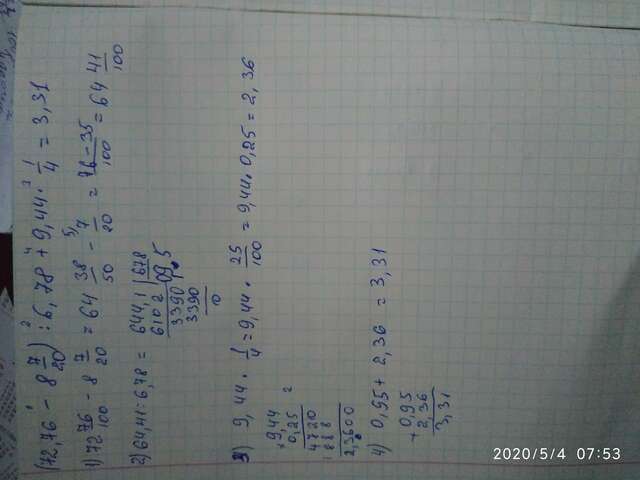 (72,76 - 8 7/20) : 6,78 + 9,44 · 1/4 = 3,31
1) 72 76/100 - 8 7/20 = 64 38/50 - 7/20 = 76-35/100 = 64 41/100
2) 64,41:6,78 = 644,1 | 678
6102 09,5
3390
3390
0
3) 9,44 · 1/4 = 9,44 · 25/100 = 9,44 · 0,25 = 2,36
9,44
0,25
4720
1888
2,3600
4) 0,95 + 2,36 = 3,31
+ 0,95
2,36
3,31
2020/5/4 07:53